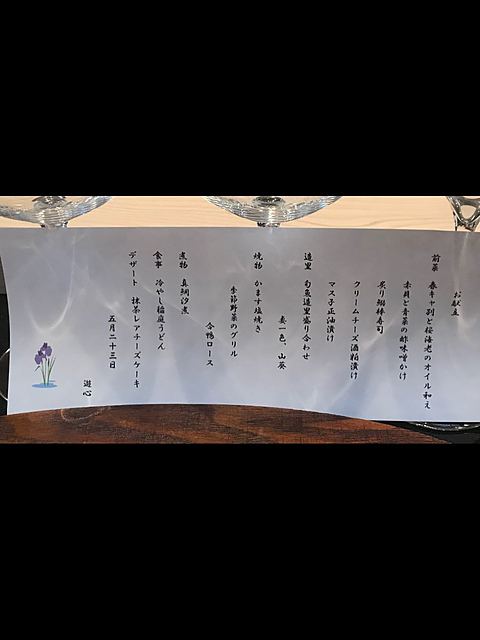 お献立
前菜 春キャベツと桜海老のオイル和え
赤貝と青菜の酢味噌かけ
炙り鯛棒寿司
クリームチーズ酒粕漬け
マス子正油漬け
造里 旬魚造里盛り合わせ
妻一色、山葵
焼物 かます塩焼き
季節野菜のグリル
合鴨ロース
煮物 真鯛沙煮
食事 冷やし稲庭うどん
デザート 抹茶レアチーズケーキ
五月二十三日
遊心